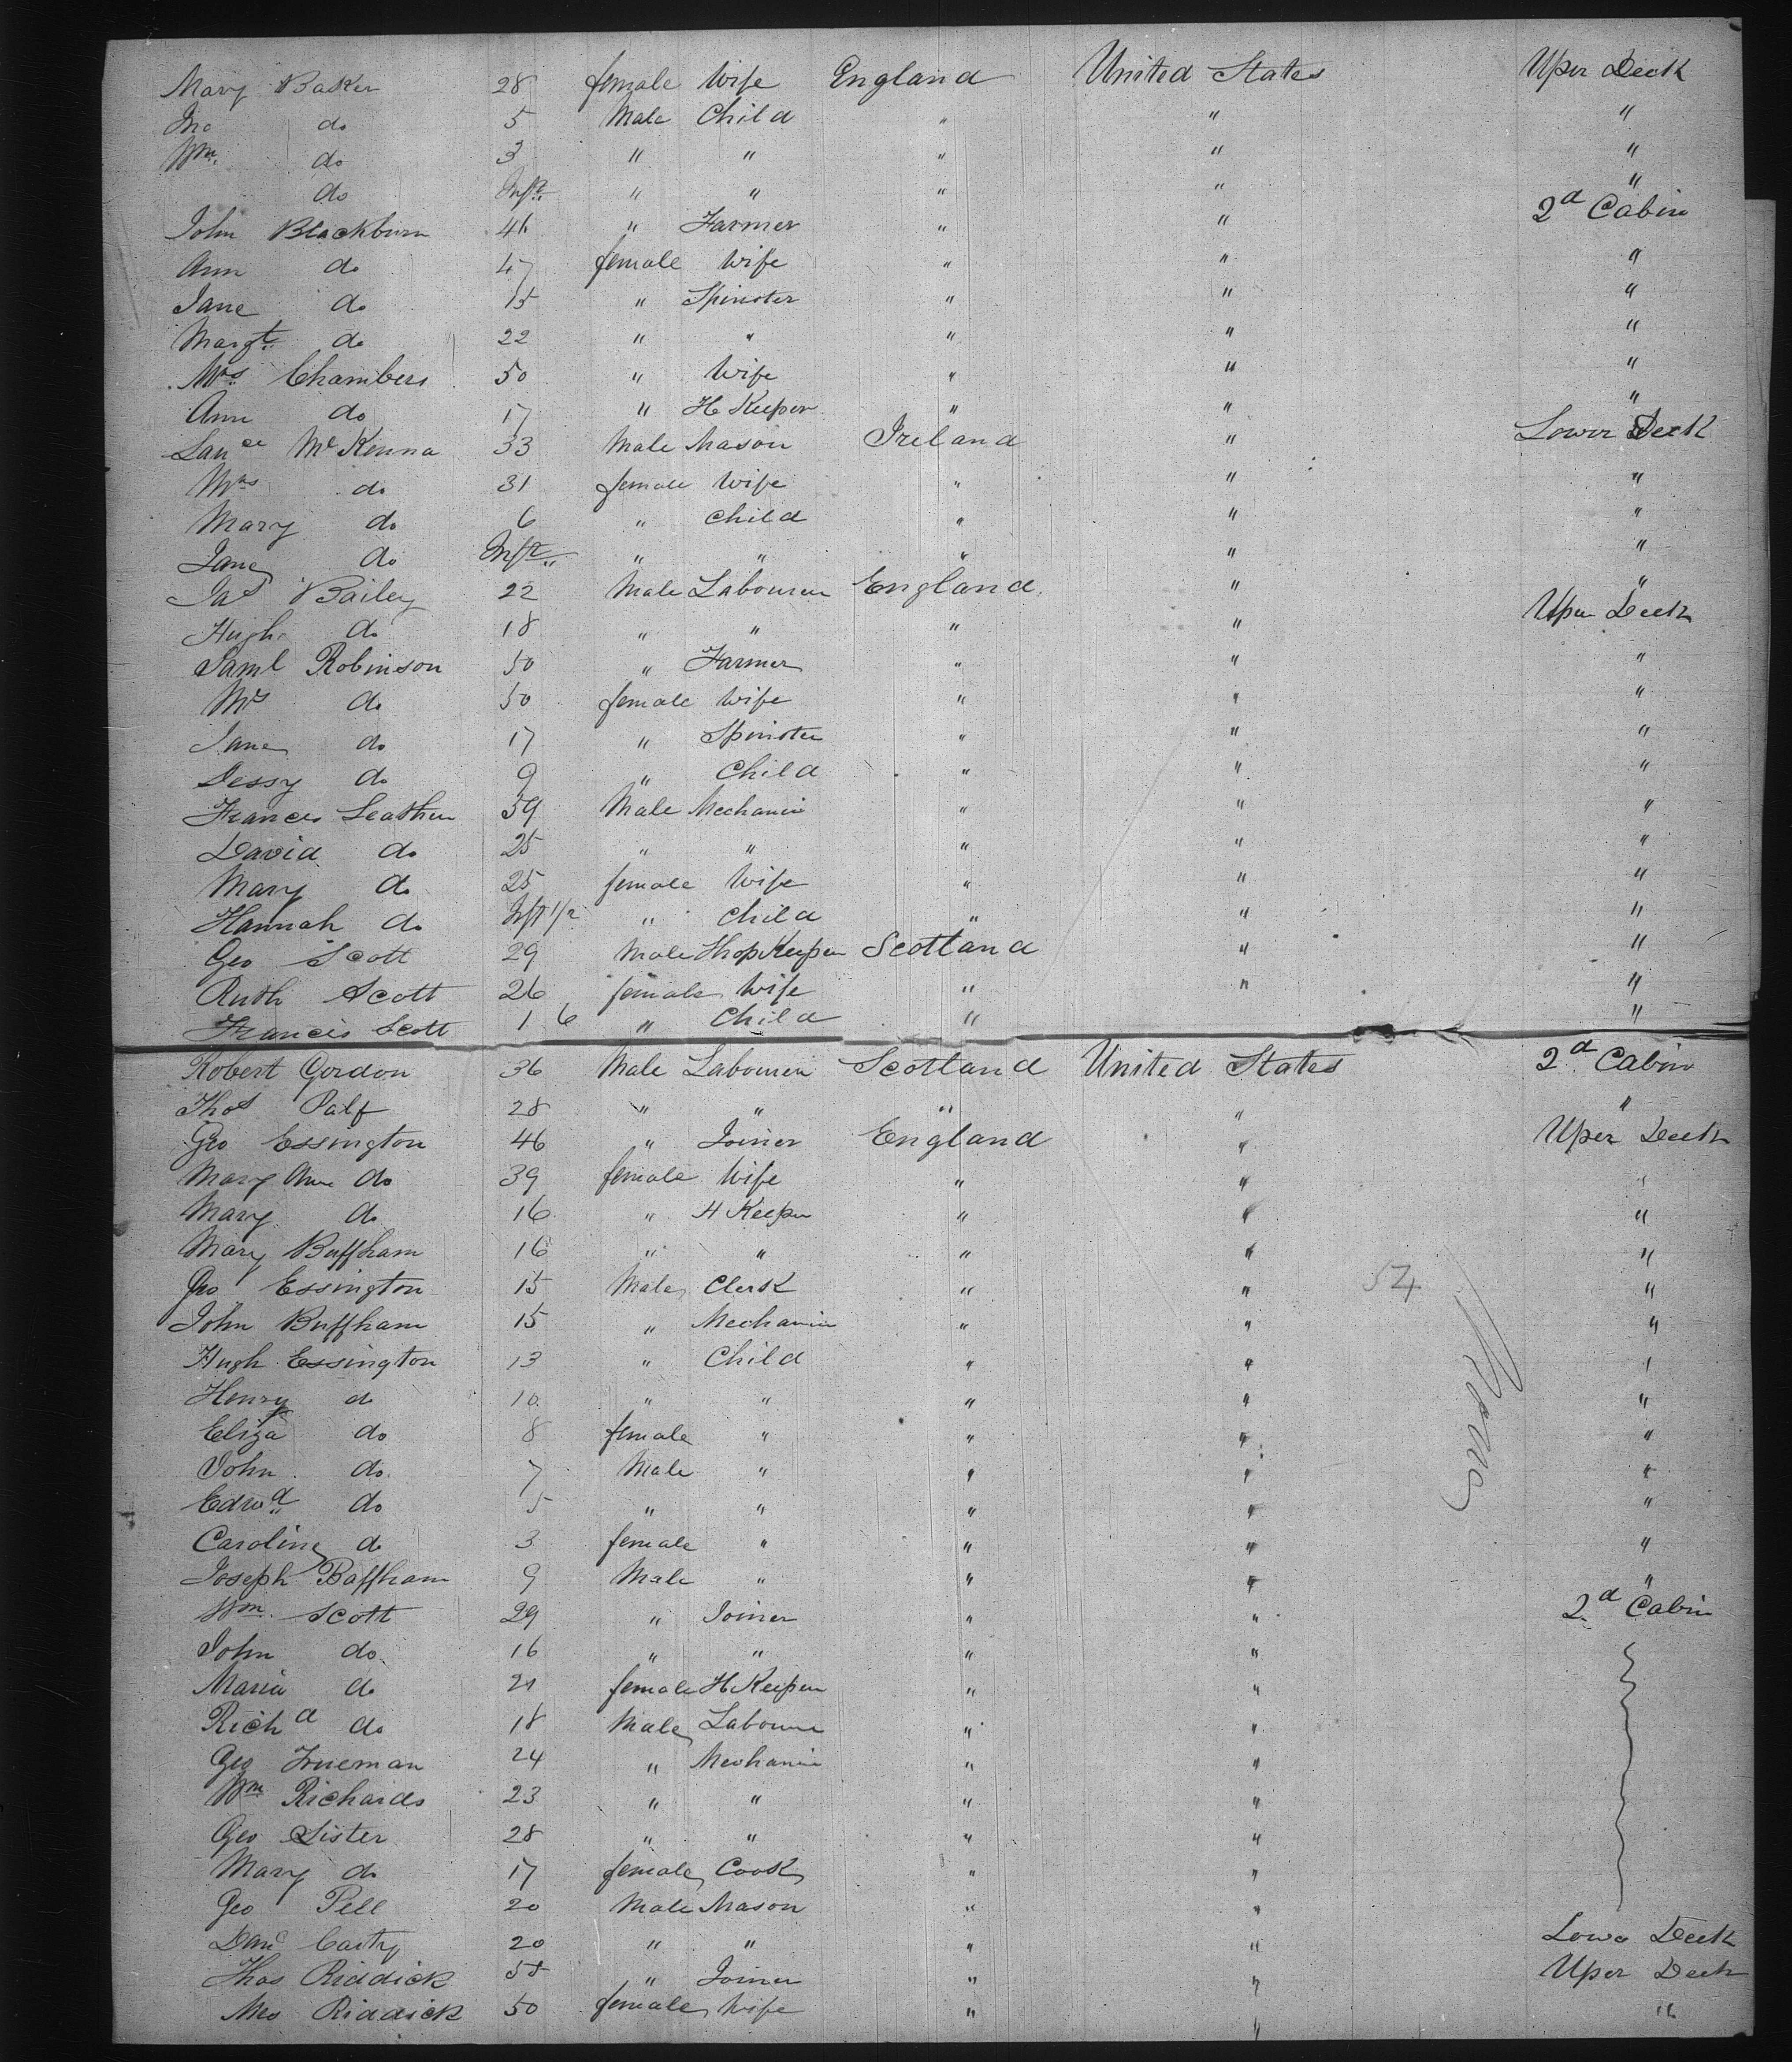 Mary Baker 28 female Wife England United States Uper Deck
Jno do 5 Male Child " " "
Wm. do 3 " " " " "
do Inft " " " " "
John Blackburn 46 " Farmer " " 2d Cabin
Ann do 47 female Wife " " "
Jane do 15 " Spinster " " "
Margt. do 22 " " " " "
Mrs. Chambers 50 " Wife " " "
Ann do 17 " H Keeper " " "
Lance McKenna 33 Male Mason Ireland " Lower Deck
Mrs do 31 female Wife " " "
Mary do 6 " Child " " "
Jane do Inft " " " " "
Jas Bailey 22 Male Labourer England " "
Hugh do 18 " " " " Uper Deck
Saml Robinson 50 " Farmer " " "
Mrs do 50 female Wife " " "
Jane do 17 " Spinster " " "
Dessy do 9 " Child " " "
Frances Leather 59 Male Mechanic " " "
David do 25 " " " " "
Mary do 25 female Wife " " "
Hannah do Inft 1/2 " Child " " "
Geo Scott 29 Male ShopKeeper Scotland " "
Ruth Scott 26 female Wife " " "
Francis Scott 1 6 " Child " "
Robert Gordon 36 Male Labourer Scotland United States 2d Cabin
Thos Palf 28 " " " " "
Geo Essington 46 " Joiner England " Uper Deck
Mary Ann do 39 female Wife " " "
Mary do 16 " H Keeper " " "
Mary Buffham 16 " " " " "
Geo Essington 15 Male Clerk " " 54 "
John Buffham 15 " Mechanic " " "
Hugh Essington 13 " Child " " "
Henry do 10 " " " " "
Eliza do 8 female " " " "
John do 7 Male " " " "
Edwd do 5 " " " " "
Caroline do 3 female " " " "
Joseph Baffham 9 Male " " " "
Wm. Scott 29 " Joiner " " 2d Cabin
John do 16 " " " "
Maria do 21 female H Keeper " "
Richd do 18 Male Labourer " "
Geo Trueman 24 " Mechanic " "
Wm Richards 23 " " " "
Geo Lister 28 " " " "
Mary do 17 female Cook " "
Geo Pell 20 Male Mason " "
Danl Carty 20 " " " " Lower Deck
Thos Riddick 55 " Joiner " " Uper Deck
Mrs Riddick 50 female Wife " " "